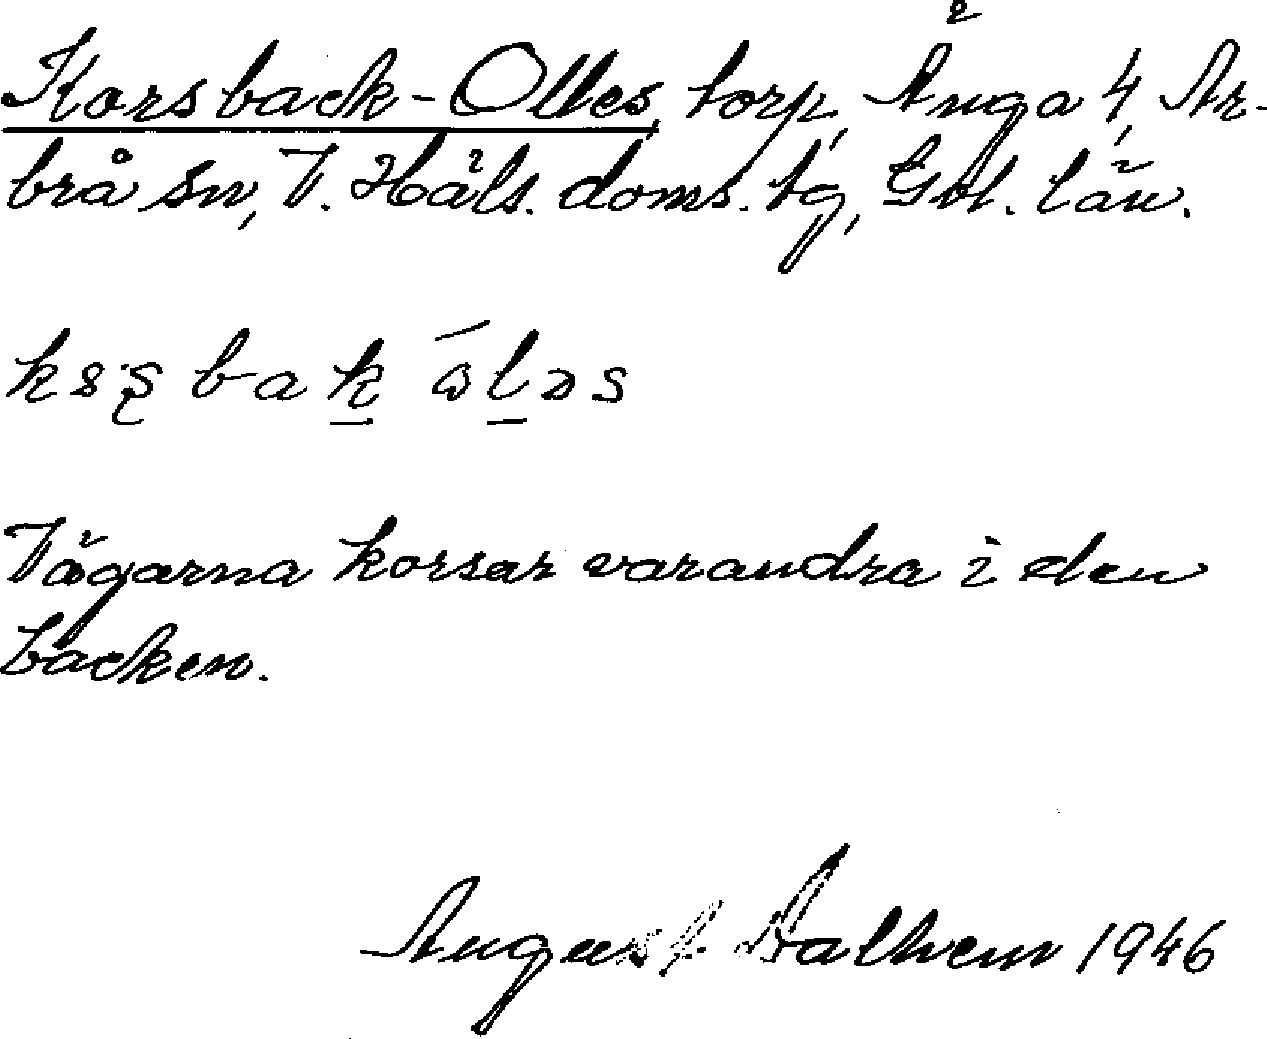 Korsback-Olles, torp, Änga 4, Ar-
brå sn, V. Häls. doms. tg, Gvl. län.
bak
Vägarna korsar varandra i den
backen.
August Dalhem 1946